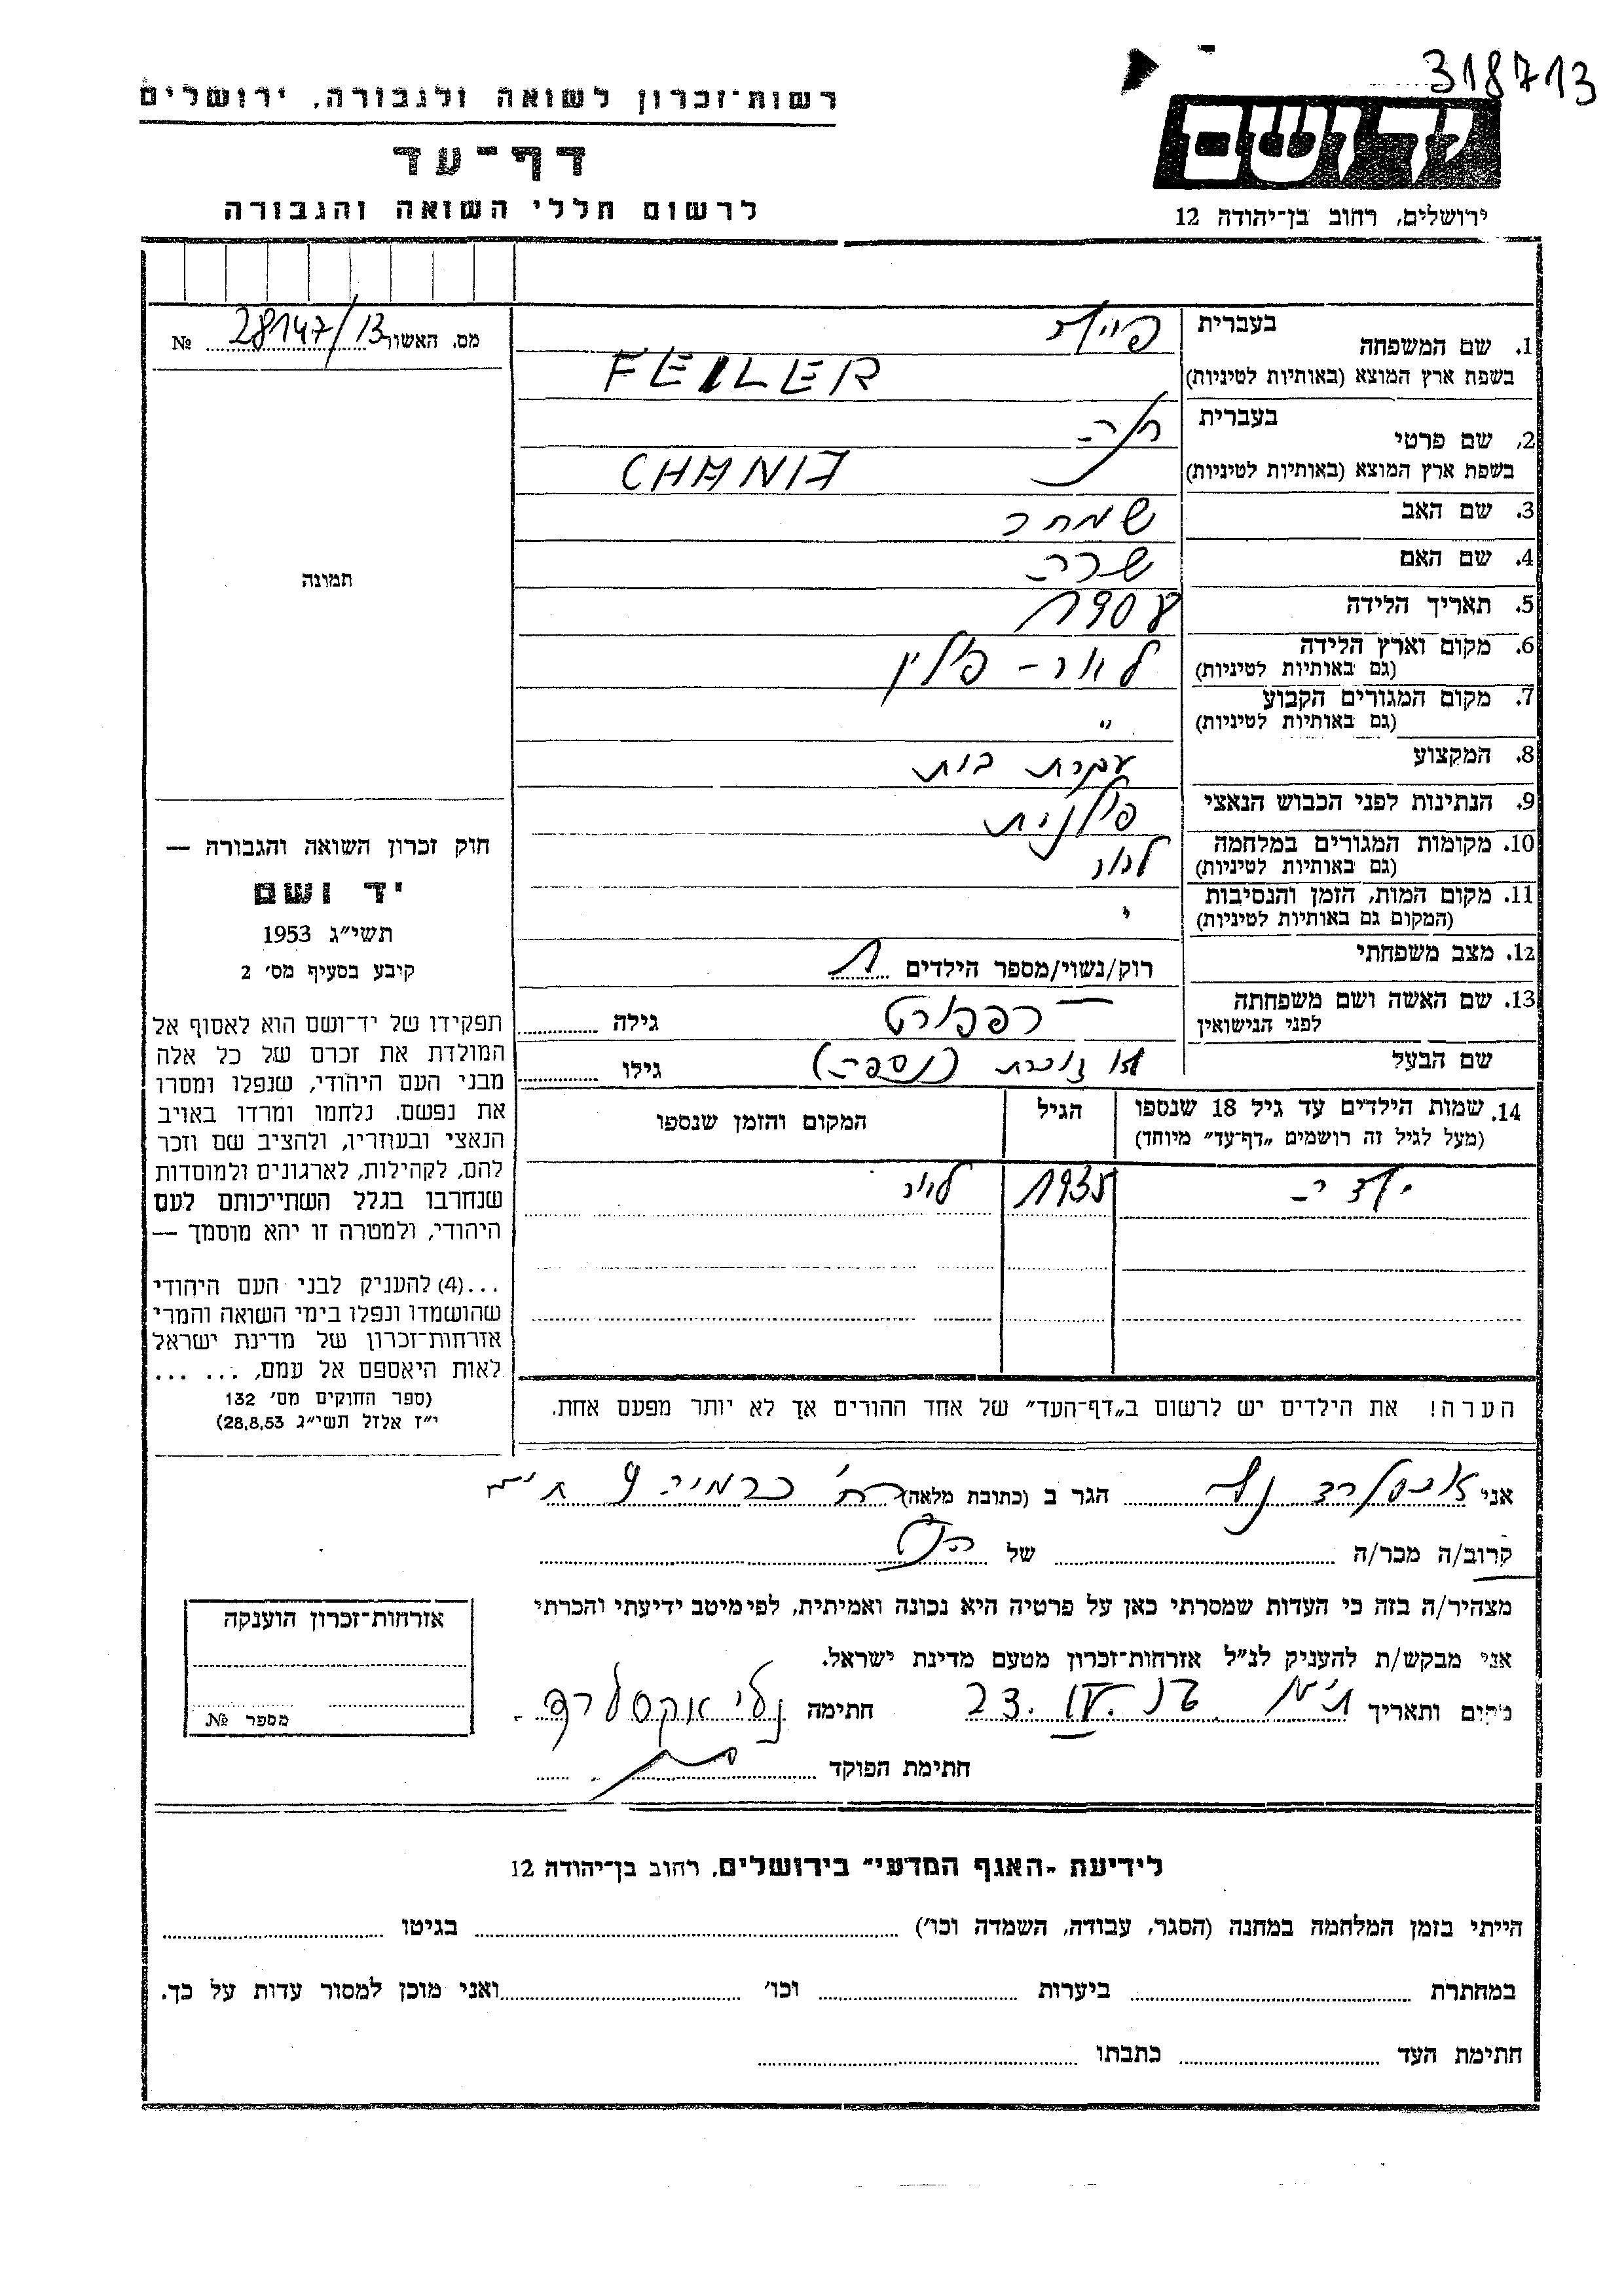 318713
רשות־זכרון לשואה ולגבורה, ירושלים
דף־עד
לרשום חללי השואה והגבורה
ידושם
ירושלים, רחוב בן־יהודה 12
מס. האשור 28147/13 №
1. שם המשפחה
בעברית
בשפת ארץ המוצא (באותיות לטיניות) FEILER
2. שם פרטי
בעברית חנה
בשפת ארץ המוצא (באותיות לטיניות) CHANIA
3. שם האב שמחה
4. שם האם שרה
5. תאריך הלידה 1908
6. מקום וארץ הלידה
(גם באותיות לטיניות) לבוב - פולין
7. מקום המגורים הקבוע
(גם באותיות לטיניות) "
8. המקצוע עקרת בית
9. הנתינות לפני הכבוש הנאצי פולנית
10. מקומות המגורים במלחמה
(גם באותיות לטיניות) לבוב
11. מקום המות, הזמן והנסיבות
(המקום גם באותיות לטיניות) "
12. מצב משפחתי רוק/נשוי/מספר הילדים 1
13. שם האשה ושם משפחתה
לפני הנישואין רפפורט גילה
שם הבעל לא זוכרת (נספה) גילו
14. שמות הילדים עד גיל 18 שנספו
(מעל לגיל זה רושמים „דף־עד” מיוחד)
הגיל
המקום והזמן שנספו
1935 לבוב
הערה! את הילדים יש לרשום ב„דף־העד” של אחד ההורים אך לא יותר מפעם אחת.
תמונה
חוק זכרון השואה והגבורה —
יד ושם
תשי״ג 1953
קובע בסעיף מס׳ 2
תפקידו של יד־ושם הוא לאסוף אל
המולדת את זכרם של כל אלה
מבני העם היהודי, שנפלו ומסרו
את נפשם, נלחמו ומרדו באויב
הנאצי ובעוזריו, ולהציב שם וזכר
להם, לקהילות, לארגונים ולמוסדות
שנחרבו בגלל השתייכותם לעם
היהודי, ולמטרה זו יהא מוסמך —
...(4) להעניק לבני העם היהודי
שהושמדו ונפלו בימי השואה והמרי
אזרחות־זכרון של מדינת ישראל
לאות היאספם אל עמם, ... ...
(ספר החוקים מס׳ 132
י״ז אלול תשי״ג 28.8.53)
אני אקסלרד נלי הגר ב (כתובת מלאה) רח׳ כרמיה 9 ת״א
קרוב/ה מכר/ה של הנ״ל
מצהיר/ה בזה כי העדות שמסרתי כאן על פרטיה היא נכונה ואמיתית, לפי מיטב ידיעתי והכרתי
אני מבקש/ת להעניק לנ״ל אזרחות־זכרון מטעם מדינת ישראל.
מקום ותאריך ת״א 23.IV. חתימה נלי אקסלרד
חתימת הפוקד
אזרחות־זכרון הוענקה
מספר №
לידיעת „האגף המדעי” בירושלים, רחוב בן־יהודה 12
הייתי בזמן המלחמה במחנה (הסגר, עבודה, השמדה וכו׳) בגיטו
במחתרת ביערות וכו׳ ואני מוכן למסור עדות על כך.
חתימת העד כתבתו